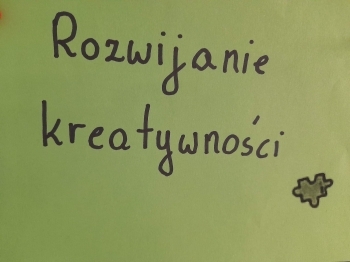 Rozwijanie
kreatywności